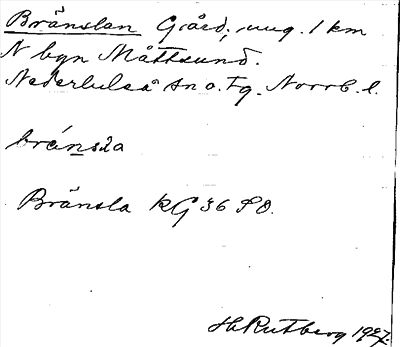 Brånslan Gård, ung. 1 km
N byn Måttsund.
Nederluleå sn o. tg. Norrb. l.
brånsla
Brånsla KG 36 SO.
H Rutberg 1927.